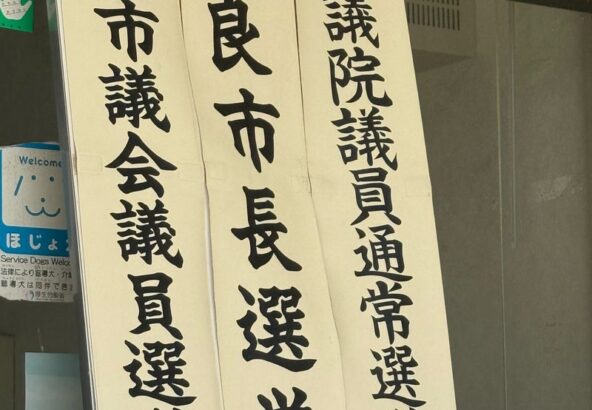 議院議員通常選
良市長選挙
市議会議員選
Welcome
ほじょ
Service Dogs Welco
法律により盲導犬・介
聴導犬は同伴で
厚生労働省